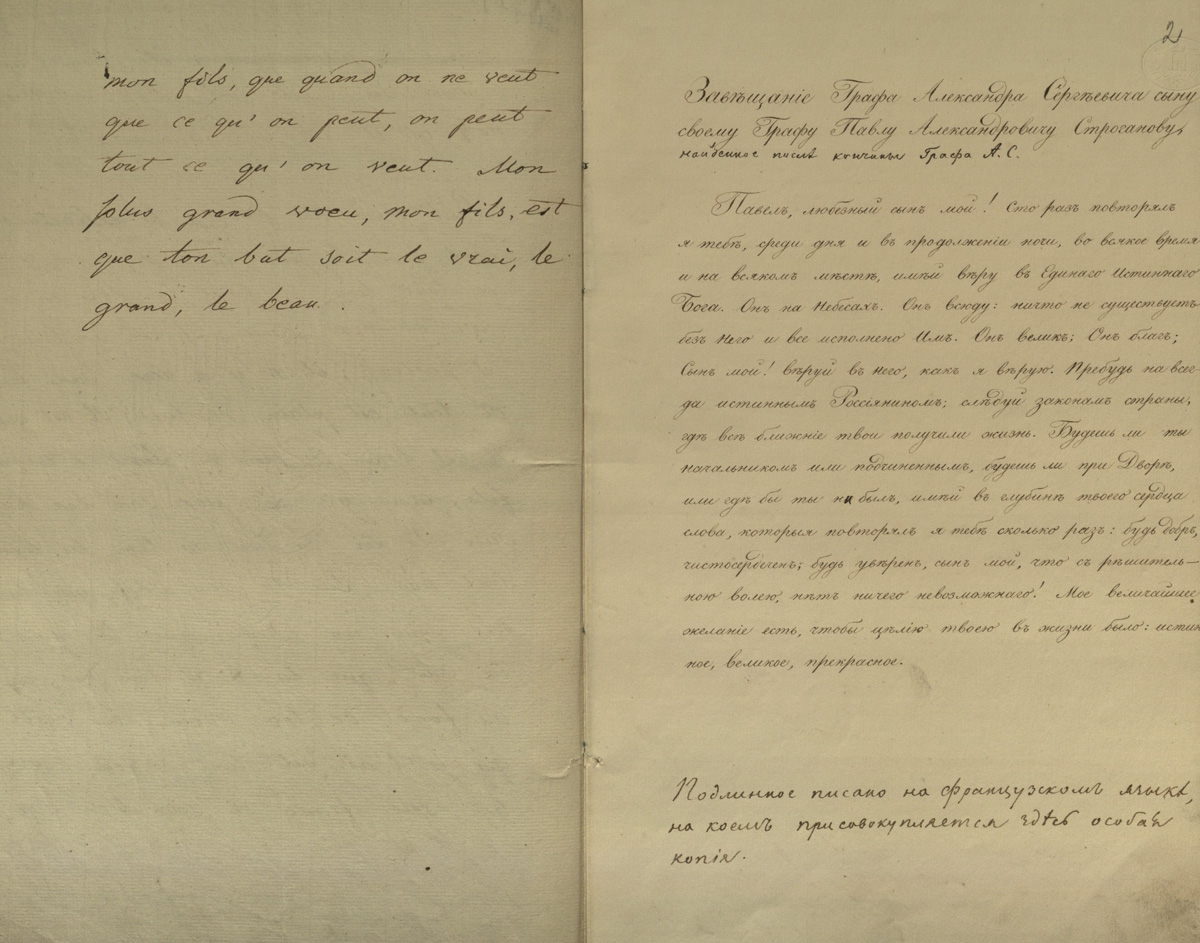 mon fils, que quand on ne veut
que ce qu'on peut, on peut
tout ce qu'on veut. Mon
plus grand voeu, mon fils, est
que ton but soit le vrai, le
grand, le beau.
2
Завѣщаніе Графа Александра Сергѣевича сыну
своему Графу Павлу Александровичу Строганову,
найденное послѣ кончины Графа А. С.
Павелъ, любезный сынъ мой! Сто разъ повторялъ
я тебѣ, среди дня и въ продолженіи ночи, во всякое время
и на всякомъ мѣстѣ, имѣй вѣру въ Единаго Истиннаго
Бога. Онъ на Небесахъ. Онъ всюду: ничто не существуетъ
безъ Него и все исполнено Имъ. Онъ великъ; Онъ благъ;
Сынъ мой! вѣруй въ Него, какъ я вѣрую. Пребудь на всег-
да истиннымъ Россіяниномъ; слѣдуй законамъ страны,
гдѣ всѣ ближніе твои получили жизнь. Будешь ли ты
начальникомъ или подчиненнымъ, будешь ли при Дворѣ,
или гдѣ бы ты ни былъ, имѣй въ глубинѣ твоего сердца
слова, которыя повторялъ я тебѣ сколько разъ: будь добръ,
чистосердеченъ; будь увѣренъ, сынъ мой, что съ рѣшитель-
ною волею, нѣтъ ничего невозможнаго! Мое величайшее
желаніе есть, чтобы цѣлію твоею въ жизни было: истин
ное, великое, прекрасное.
Подлинное писано на французскомъ языкѣ,
на коемъ присовокупляется здѣсь особая
копія.